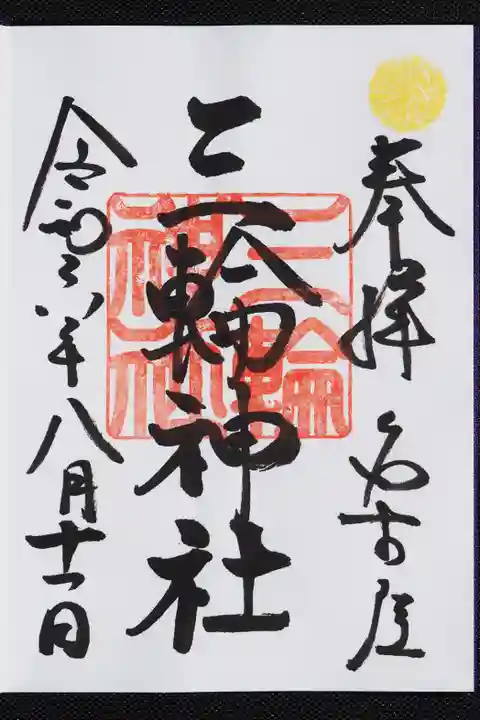 奉拝 名古屋
三輪神社
三輪神社
令和六年八月十一日